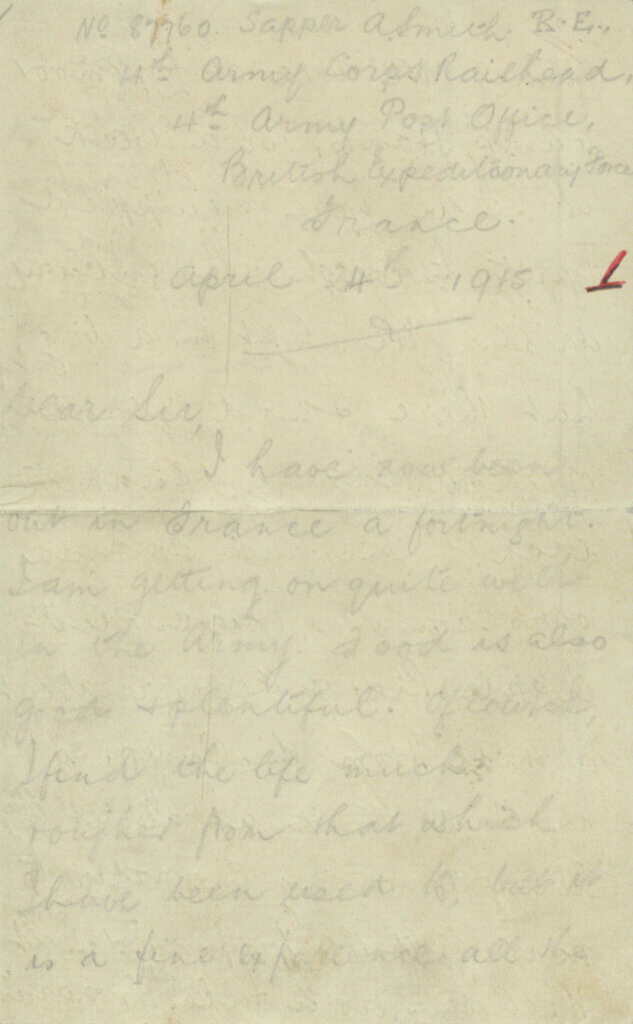 No 87760. Sapper A. Smith R.E.,
4th Army Corps Railhead,
4th Army Post Office,
British Expeditionary Force
France.
April 4th 1915
1
Dear Sir,
I have now been
out in France a fortnight.
I am getting on quite well
in the Army. Food is also
good & plentiful. Of course,
I find the life much
rougher from that which
I have been used to, but it
is a fine experience all the